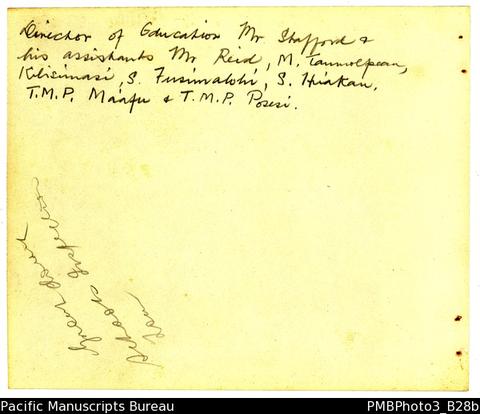 Director of Education Mr Stafford &
his assistants Mr Reid, M. Taumoepeau,
Kilisimasi, S. Fusimalohi, S. Hiakau,
T.M.P. Maafu & T.M.P. Posesi.
Schools Inspection
Pacific Manuscripts Bureau
PMBPhoto3_B28b